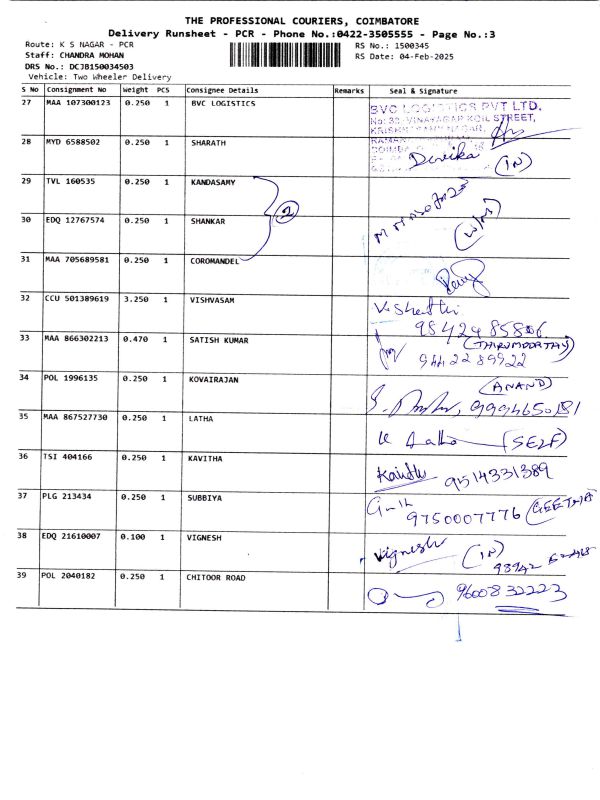 THE PROFESSIONAL COURIERS, COIMBATORE
Delivery Runsheet - PCR - Phone No.:0422-3505555 - Page No.:3
Route: K S NAGAR - PCR
RS No.: 1500345
Staff: CHANDRA MOHAN
RS Date: 04-Feb-2025
DRS No.: DCJB150034503
Vehicle: Two Wheeler Delivery
S No Consignment No Weight PCS Consignee Details Remarks Seal & Signature
27 MAA 107300123 0.250 1 BVC LOGISTICS
BVC LOGISTICS PVT LTD.
No: 39, VINAYAGAR KOIL STREET,
28 MYD 6588502 0.250 1 SHARATH
Devika (IN)
29 TVL 160535 0.250 1 KANDASAMY
2
30 EDQ 12767574 0.250 1 SHANKAR
31 MAA 705689581 0.250 1 COROMANDEL
32 CCU 501389619 3.250 1 VISHVASAM
9842485806
33 MAA 866302213 0.470 1 SATISH KUMAR
(THIRUMOORTHY)
9442289922
34 POL 1996135 0.250 1 KOVAIRAJAN
(ANAND)
9994650181
35 MAA 867527730 0.250 1 LATHA
(SELF)
36 TSI 404166 0.250 1 KAVITHA
9514331389
37 PLG 213434 0.250 1 SUBBIYA
9750007776 (GEETHA)
38 EDQ 21610007 0.100 1 VIGNESH
Vignesh (IN)
98942
39 POL 2040182 0.250 1 CHITOOR ROAD
9600832223